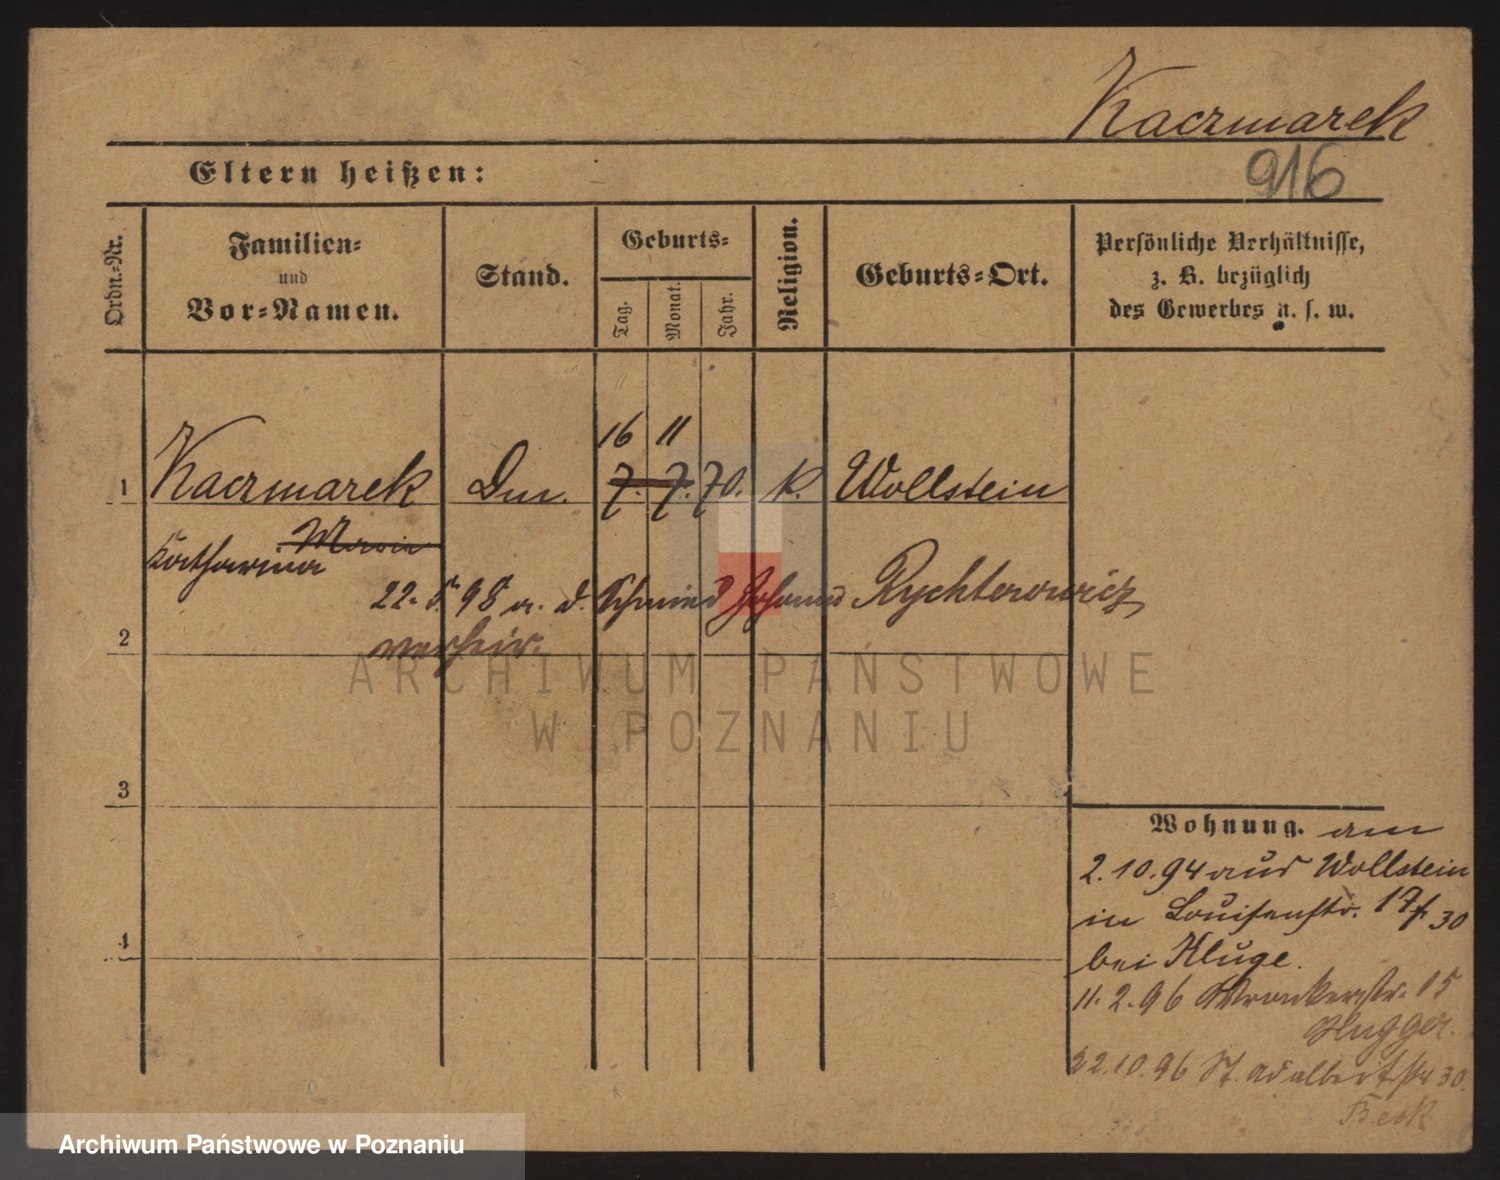 Kaczmarek
916
Eltern heißen:
Ordn.-Nr.
Familien-
und
Vor-Namen.
Stand.
Geburts-
Tag.
Monat.
Jahr.
Religion.
Geburts-Ort.
Persönliche Verhältnisse,
z. B. bezüglich
des Gewerbes u. s. w.
16 11
1 Kaczmarek 7. 7. 70. k. Wollstein
Marie
Katharina
22. 5. 98 a. d. Schmied Johann Rychterowicz
2 verheir.
ARCHIWUM PAŃSTWOWE
W POZNANIU
3
Wohnung. am
2.10.94 aus Wollstein
in Louisenstr. 17f 30
4
bei Kluge.
11.2.96 Wronkerstr. 15
Hugger.
22.10.96 St. Adalbertstr 30.
Beck
Archiwum Państwowe w Poznaniu